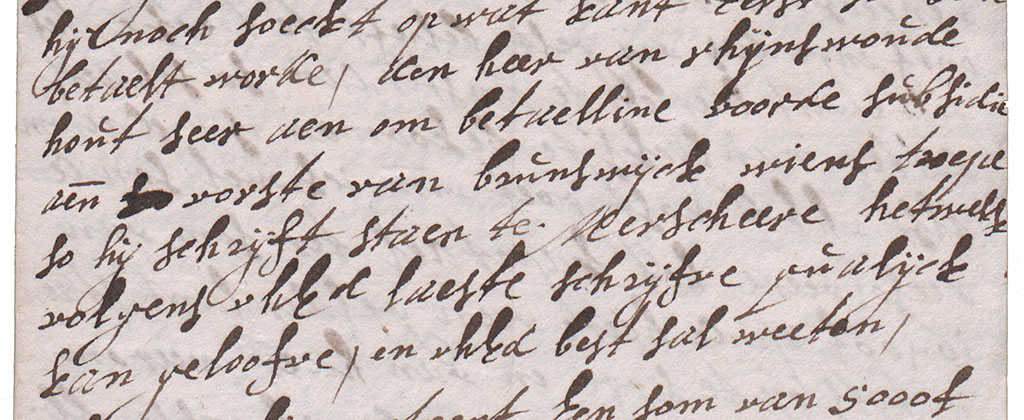 hij noch soeckt op wat kant
betaelt worde, den heer van rhijnswoude
hout seer aen om betaelline voorde subsidie
aen vorste van brunswijck wiens troepe
so hij schrijft staen te Merscheere hetwelk
volgens vhEd laeste schrijfve qualijck
kan geloofve, en vhEd best sal weeten,
een som van 5000f